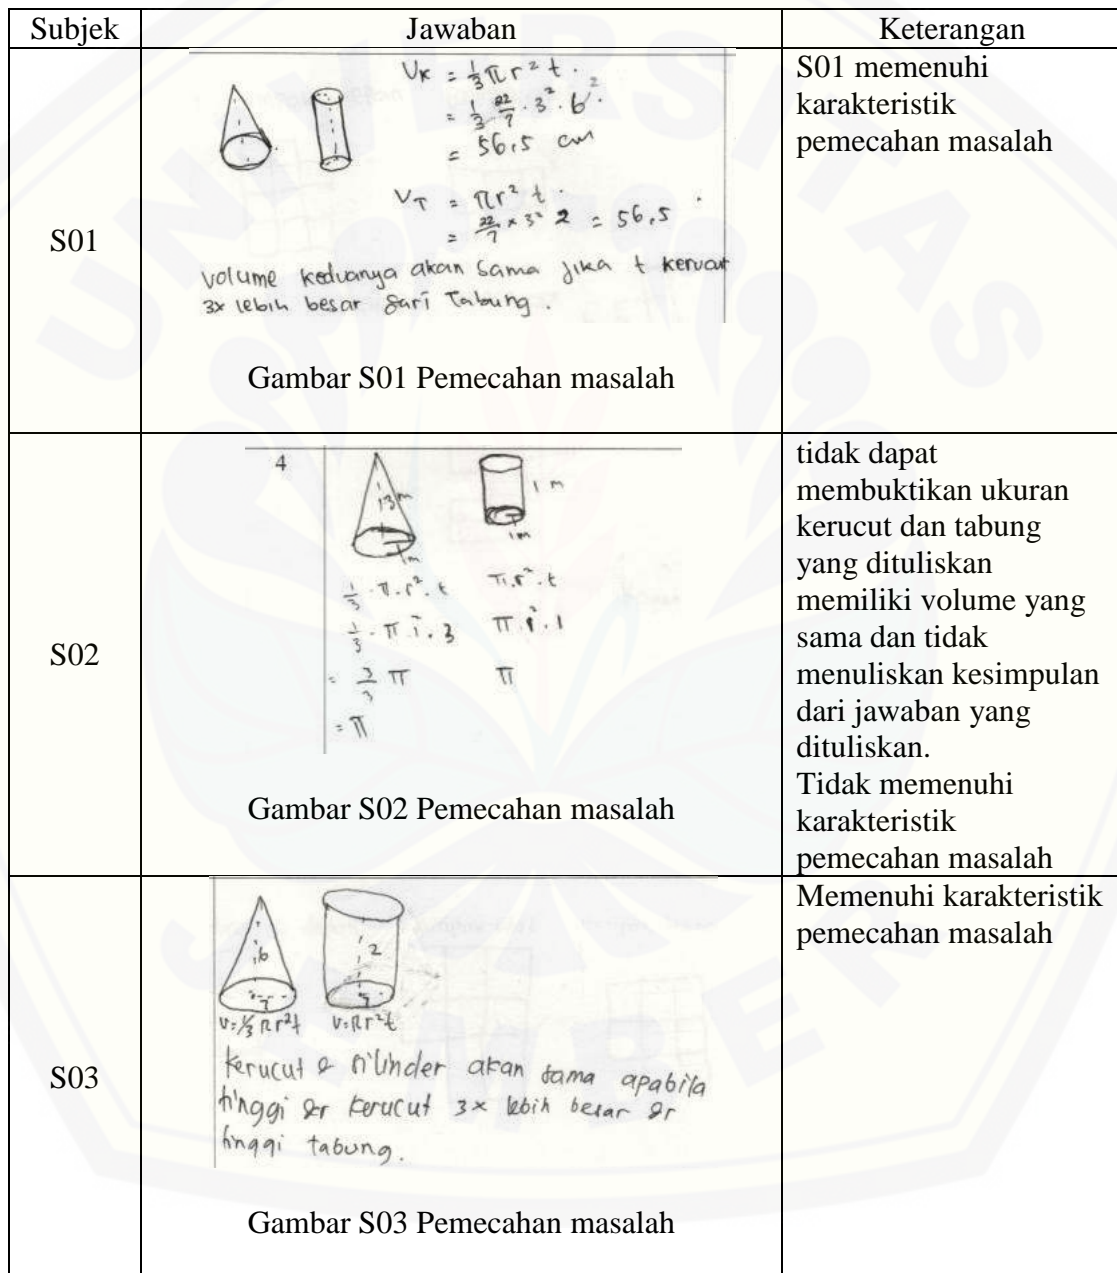 Subjek Jawaban Keterangan
S01
V_K = 1/3 π r² t.
= 1/3 22/7 . 3² . 6².
= 56,5 cm
V_T = πr² t.
= 22/7 × 3² 2 = 56,5
volume keduanya akan sama jika t kerucut
3x lebih besar dari Tabung.
Gambar S01 Pemecahan masalah
S01 memenuhi
karakteristik
pemecahan masalah
S02
4
3m
1m
1 m
1m
1/3 . π . r² . t
π . r² . t
1/3 . π . 1 . 3
π . 1² . 1
= 3/3 π
π
= π
Gambar S02 Pemecahan masalah
tidak dapat
membuktikan ukuran
kerucut dan tabung
yang dituliskan
memiliki volume yang
sama dan tidak
menuliskan kesimpulan
dari jawaban yang
dituliskan.
Tidak memenuhi
karakteristik
pemecahan masalah
S03
6
7
2
7
V=1/3 πr²t
V=πr²t
Kerucut & silinder akan sama apabila
tinggi dr kerucut 3x lebih besar dr
tinggi tabung.
Gambar S03 Pemecahan masalah
Memenuhi karakteristik
pemecahan masalah
UNIVERSITAS
JEMBER